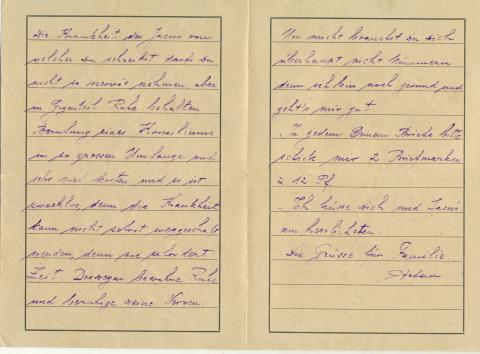 Die Krankheit des Jacus von
welcher Du schreibst darfst Du
nicht so nervös nehmen, aber
im Gegenteil Ruhe behalten.
Berufung eines Konsiliums
in so grossen Umfange wird
sehr viel kosten und es ist
zwecklos, denn die Krankheit
kann nicht sofort weggeschafft
werden, denn sie erfordert
Zeit. Deswegen bewahre Ruhe
und beruhige deine Nerven.
Um mich brauchst Du Dich
überhaupt nicht kümmern
denn ich bin noch gesund und
geht's mir gut.
In jedem Deinem Briefe bitte
schick mir 2 Briefmarken
à 12 Pf.
Ich küsse dich und Jacus
am herzlichsten.
Die Grüsse für Familie.